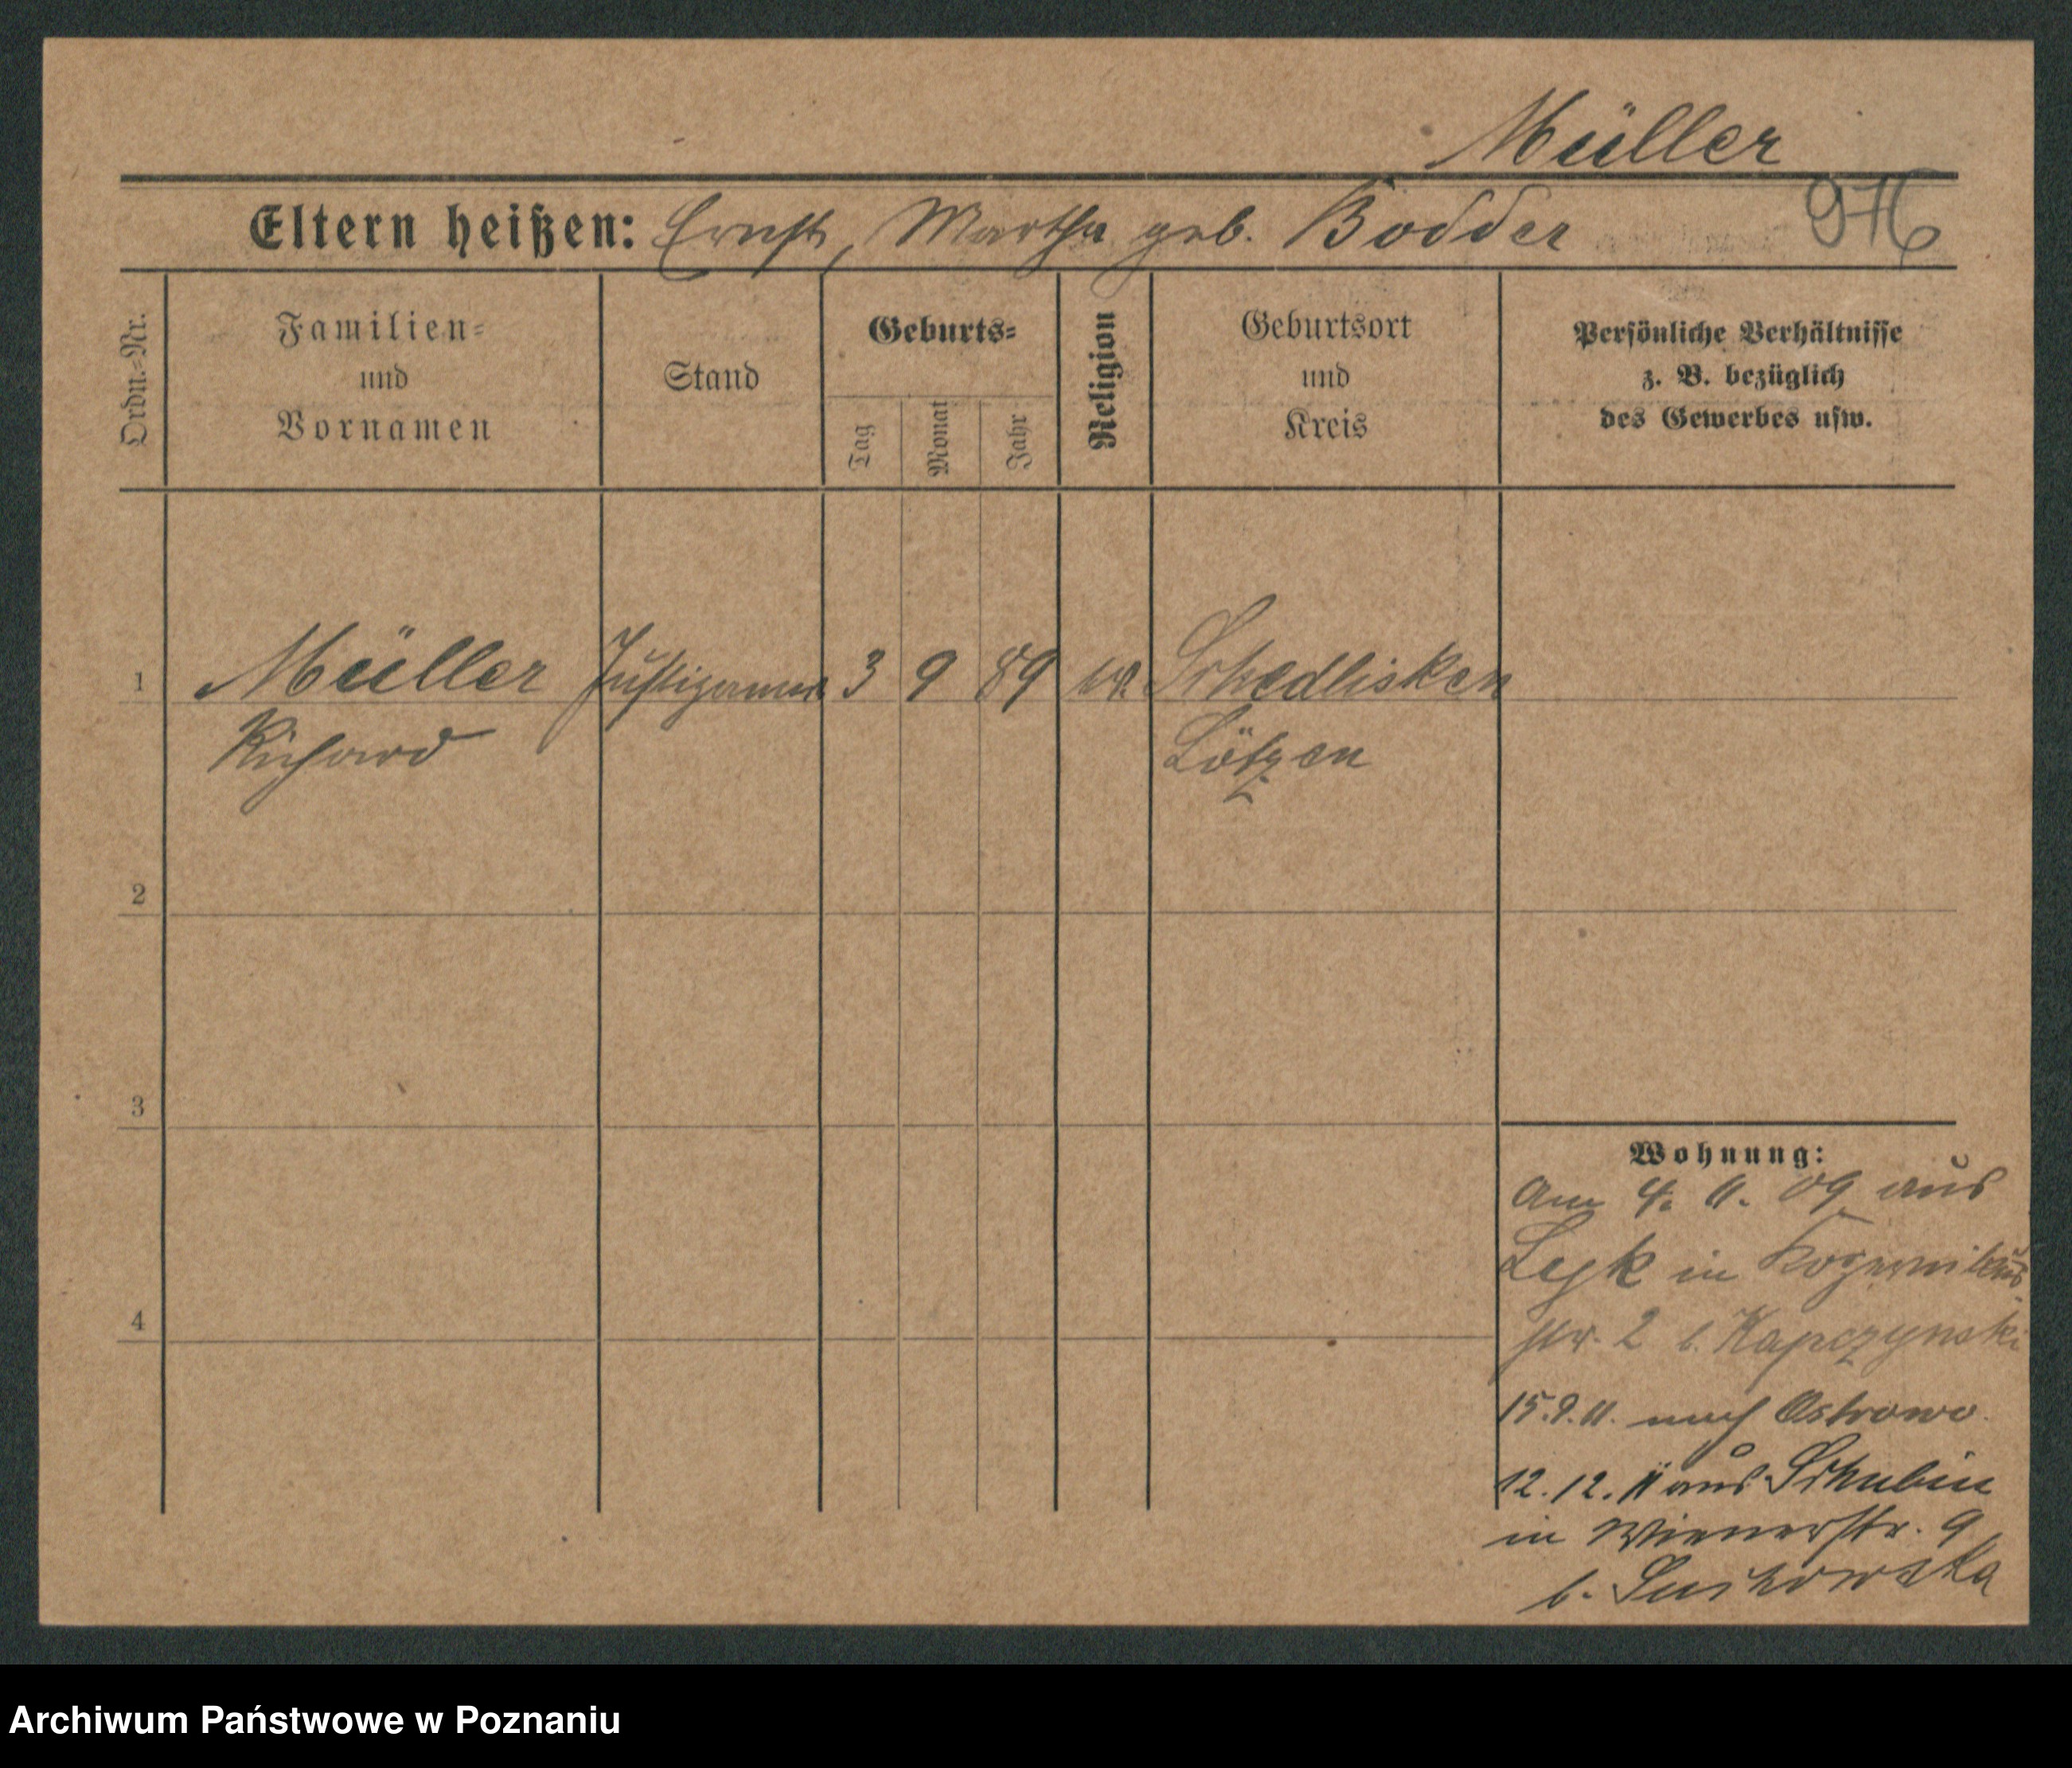 Müller
Eltern heißen: Ernst, Martha geb. Bodder 976
Ordn.-Nr.
Familien-
und
Vornamen
Stand
Geburts-
Tag
Monat
Jahr
Religion
Geburtsort
und
Kreis
Persönliche Verhältnisse
z. B. bezüglich
des Gewerbes usw.
1 Müller 3 9 89 Schedlisken
Richard Lötzen
2
3
4
Wohnung:
Am 4. 11. 09 aus
Lyk in
str. 2 b. Kapczynski
15.9.11. nach Ostrowo.
12.12.11 aus Schubin
in Wienerstr. 9
b.
Archiwum Państwowe w Poznaniu